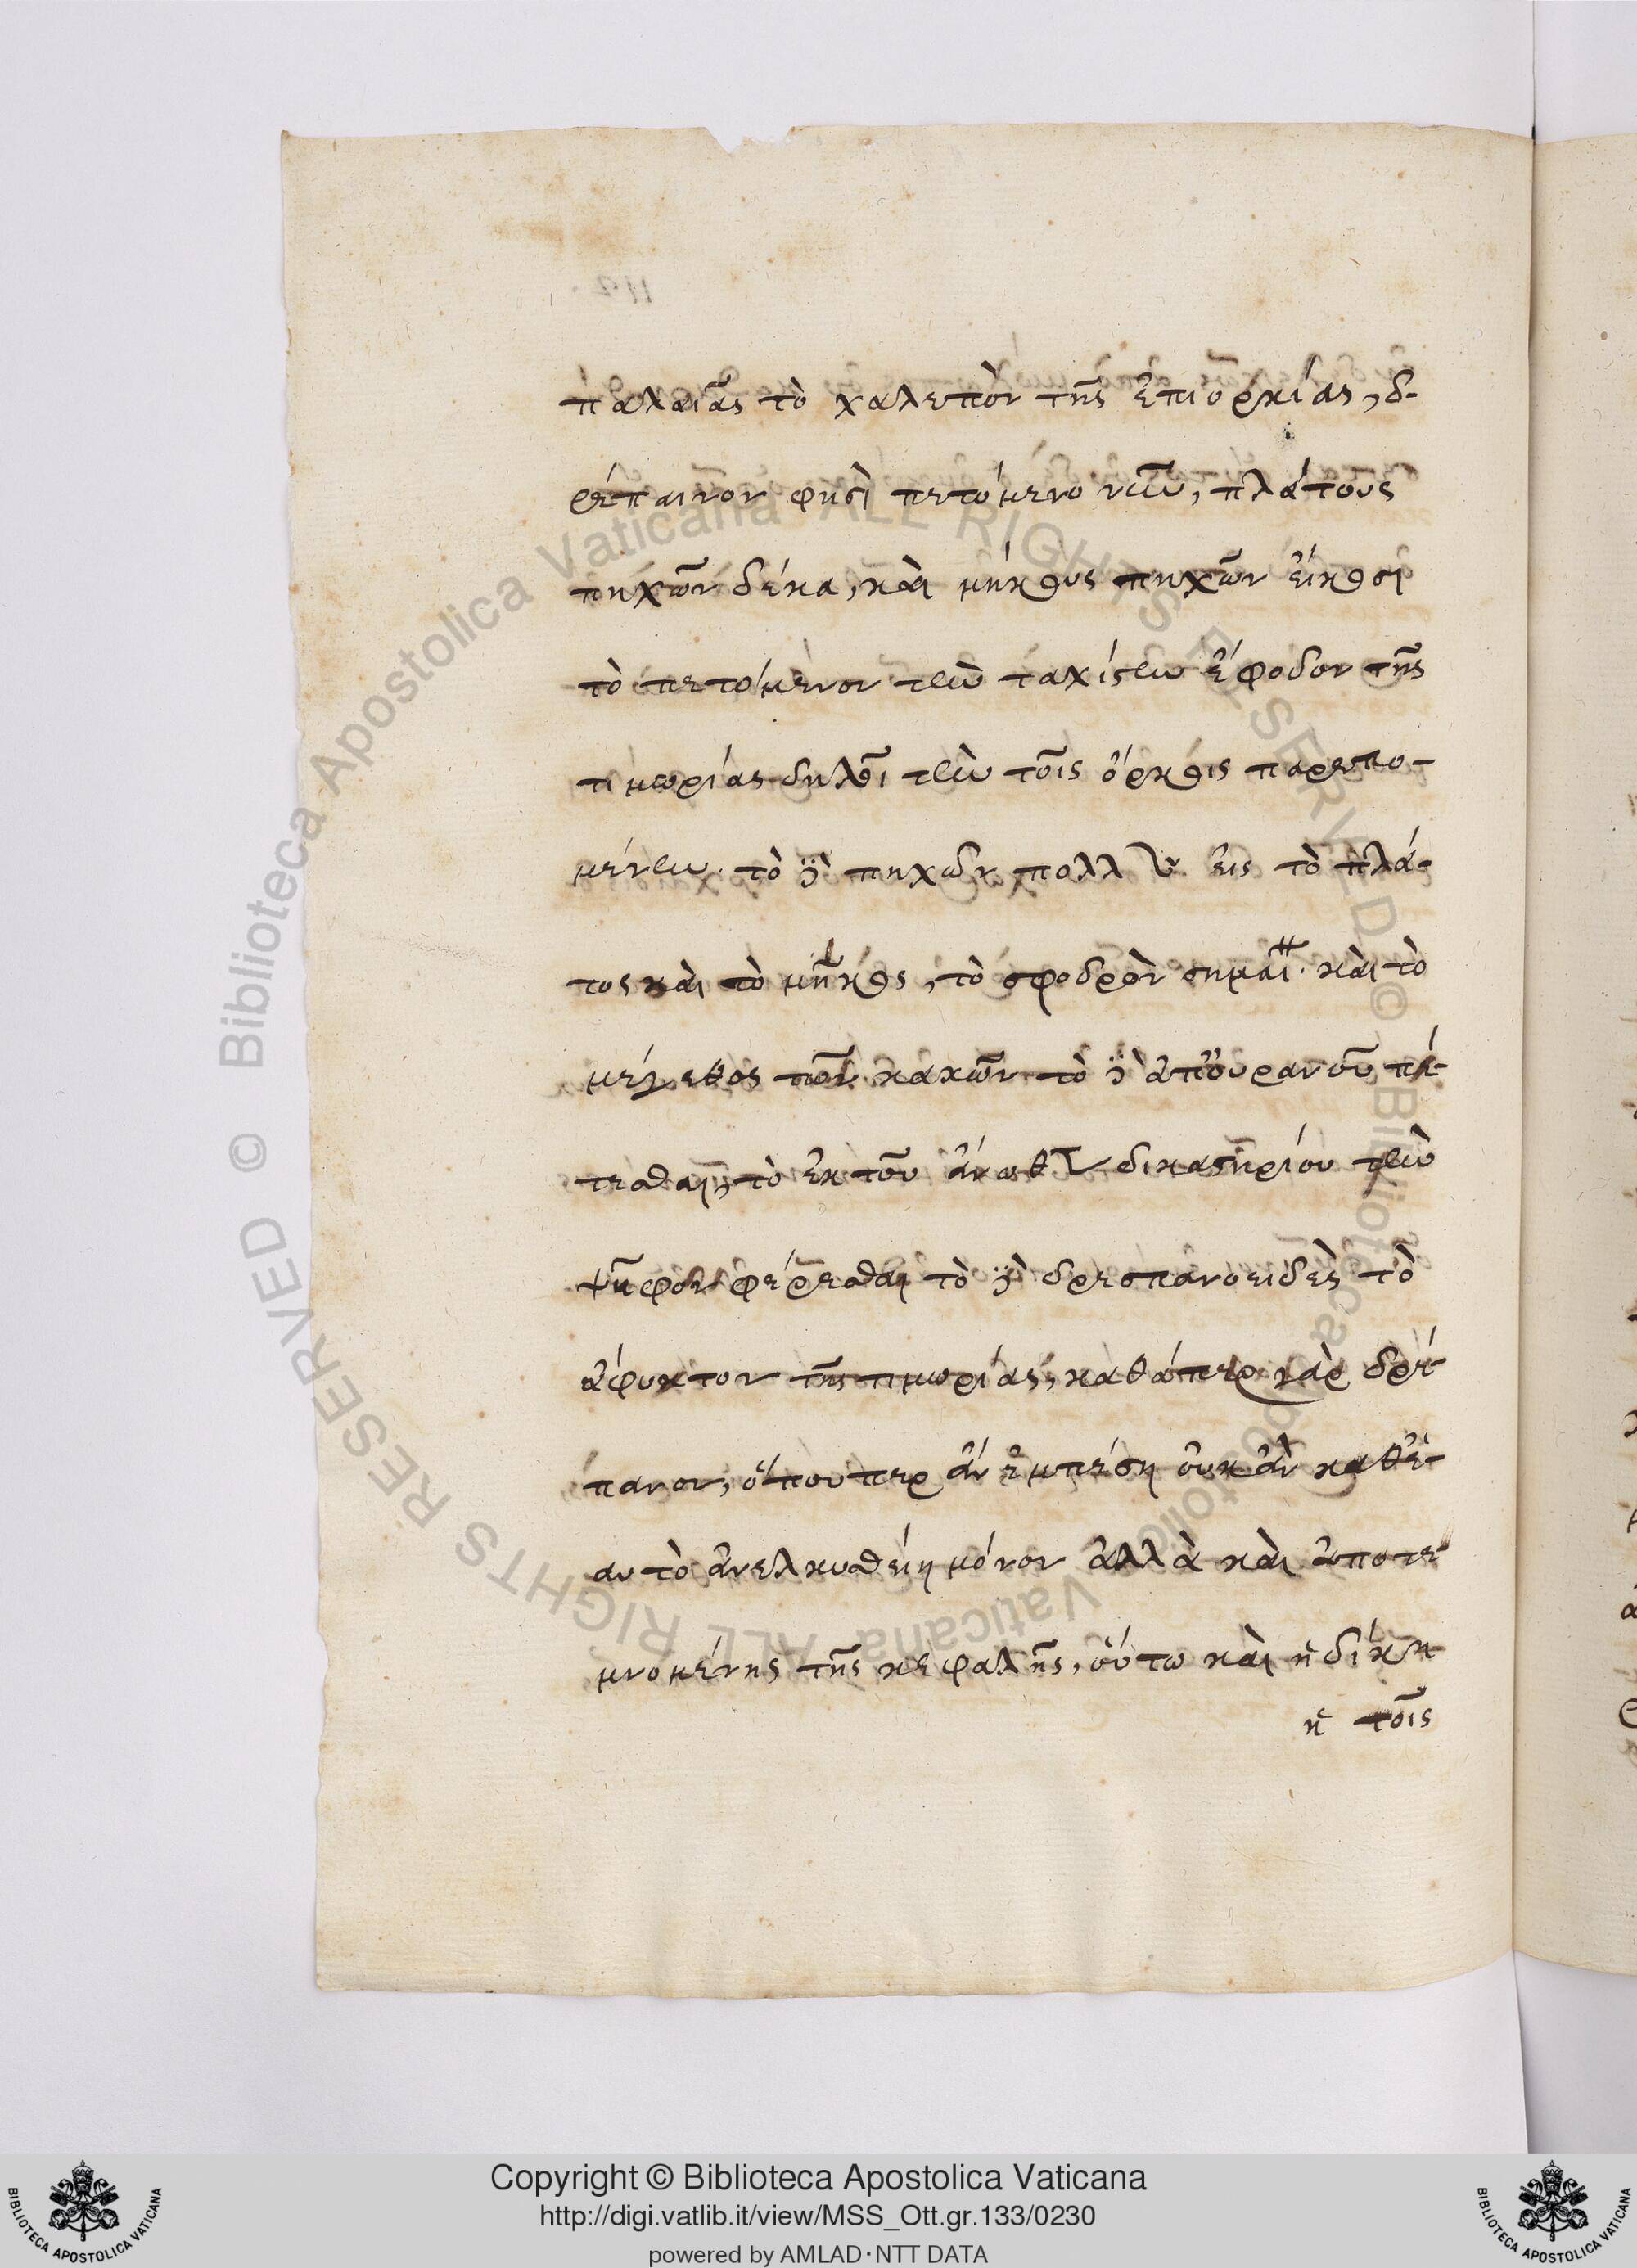 παλαιᾶς τὸ χαλεπὸν τῆς ἐπιορκίας, δ-
ρέπαινον φησὶ πετόμενον ἦν, πλάτους
πηχῶν δέκα, καὶ μήκους πηχῶν εἴκοσι
τὸ πετόμενον τὴν ταχίστην ἔφοδον τῆς
τιμωρίας δηλοῖ τὴν τοῖς ὅρκοις παρεπο-
μένην. τὸ δὲ πηχῶν πολλῶν εἰς τὸ πλά-
τος καὶ τὸ μῆκος, τὸ σφοδρὸν σημαίνει. καὶ τὸ
μέγεθος τῶν κακῶν τὸ δὲ ἀπ' οὐρανοῦ πέ-
τεσθαι, τὸ ἐκ τοῦ ἄνωθεν δικαστηρίου τὴν
ψῆφον φέρεσθαι τὸ δὲ δρεπανοειδὲς τὸ
ἄφυκτον τῆς τιμωρίας, καθάπερ γὰρ δρέ-
πανον, ὅπουπερ ἂν ἐμπέσῃ οὐκ ἂν καθ' ἑ-
αυτὸ ἀνελκυσθείη μόνον ἀλλὰ καὶ ἀποτε
μνομένης τῆς κεφαλῆς, οὕτω καὶ ἡ δίκη
ἡ τοῖς
Copyright © Biblioteca Apostolica Vaticana
http://digi.vatlib.it/view/MSS_Ott.gr.133/0230
powered by AMLAD·NTT DATA
BIBLIOTECA APOSTOLICA VATICANA
BIBLIOTECA APOSTOLICA VATICANA
© Biblioteca Apostolica Vaticana ALL RIGHTS RESERVED © Biblioteca Apostolica Vaticana ALL RIGHTS RESERVED